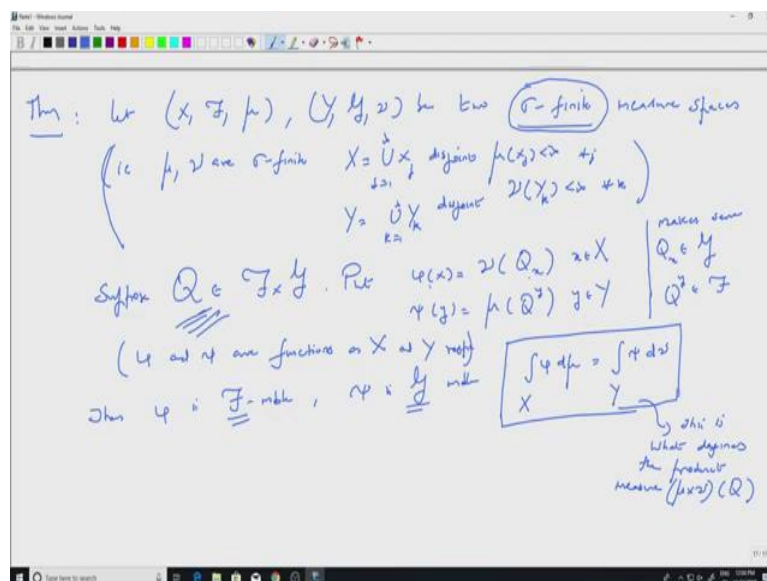 Note1 - Windows Journal
File Edit View Insert Actions Tools Help
Thm : Let (X, F, μ), (Y, G, ν) be two σ-finite measure spaces
(ie μ, ν are σ-finite X = ∪_{j=1}^∞ X_j disjoint μ(X_j) < ∞ ∀j
ν(Y_k) < ∞ ∀k)
Y = ∪_{k=1}^∞ Y_k disjoint
Suppose Q ∈ F × G. Put φ(x) = ν(Q_x) x ∈ X
ψ(y) = μ(Q^y) y ∈ Y
makes sense
Q_x ∈ G
Q^y ∈ F
(φ and ψ are functions on X and Y resp)
Then φ is F-mble, ψ is G mble
∫_X φ dμ = ∫_Y ψ dν
This is
what defines
the product
measure (μ×ν)(Q)
Type here to search
ENG